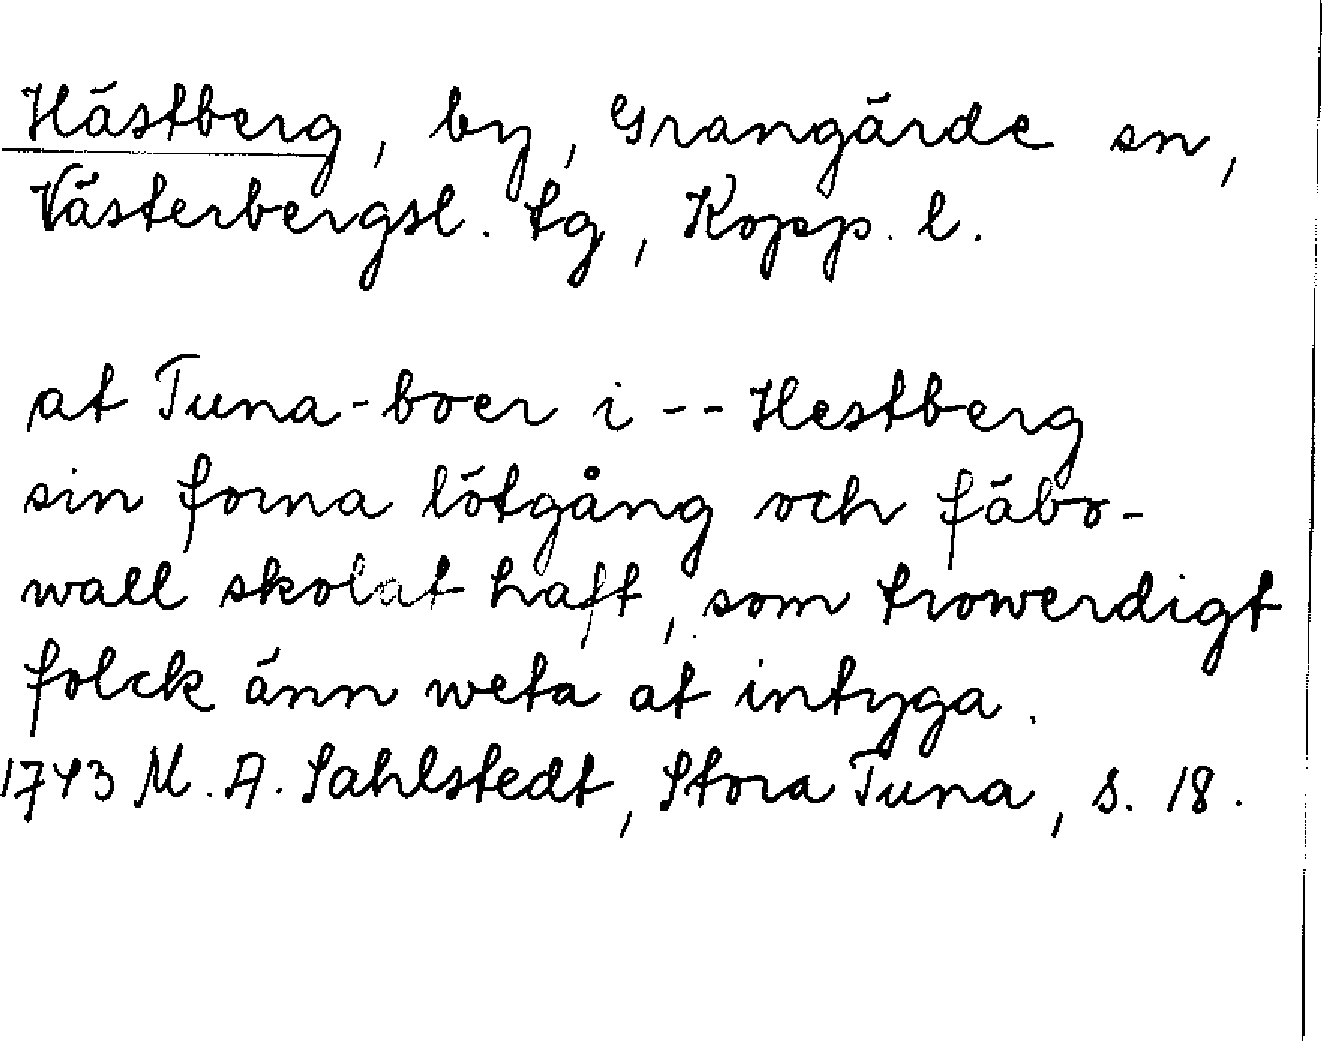 Hästberg, by, Grangärde sn,
Västerbergsl. tg, Kopp. l.
at Tuna-boer i -- Hestberg
sin forna lötgång och fäbo-
wall skolat haft, som trowerdigt
folck änn weta at intyga.
1743 M. A. Sahlstedt, Stora Tuna, s. 18.